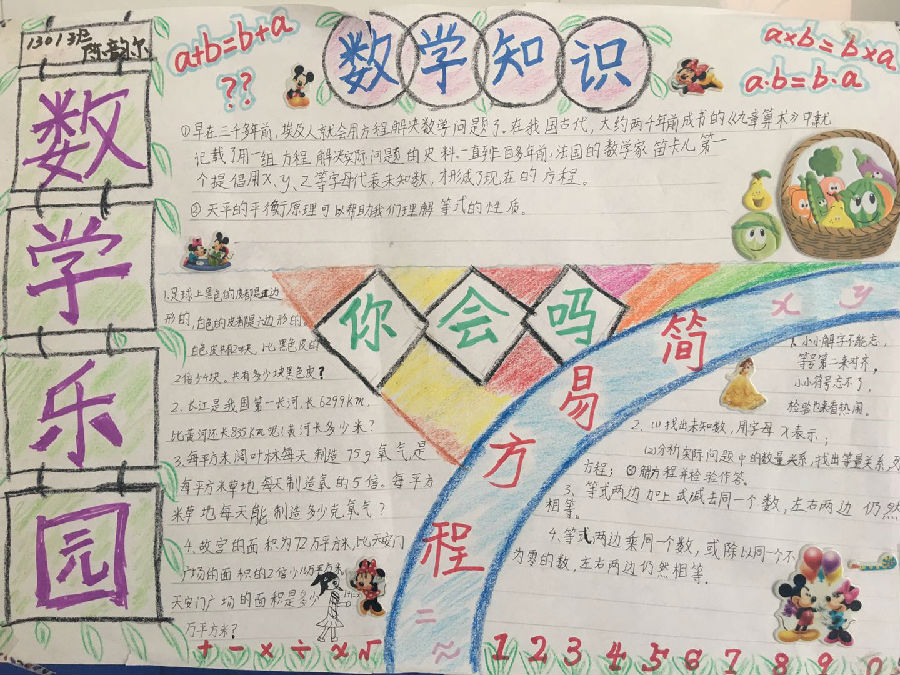 1301班
陈韵尔
数学乐园
a+b=b+a
??
数学知识
a×b=b×a
a·b=b·a
①早在三千多年前,埃及人就会用方程解决数学问题了。在我国古代,大约两千年前成书的《九章算术》中就
记载了用一组方程解决实际问题的史料。一直到三百多年前,法国的数学家笛卡儿第一
个提倡用X、y、Z等字母代表未知数,才形成了现在的方程。
②天平的平衡原理可以帮助我们理解等式的性质。
你会吗
1.足球上黑色的皮都是五边
形的,白色的皮都是六边形的。
白色皮有20块,比黑色皮的
2倍少4块。共有多少块黑色皮?
2.长江是我国第一长河,长6299km,
比黄河还长835km呢!黄河长多少米?
3.每平方米阔叶林每天制造75g氧气,是
每平方米草地每天制造氧的5倍。每平方
米草地每天能制造多少克氧气?
4.故宫的面积为72万平方米,比天安门
广场的面积的2倍少16万平方米。
天安门广场的面积是多少
万平方米?
简易方程
x y
=
≈
1.小小解字不能忘,
等号第二来对齐,
小小符号忘不了,
检验也来看热闹。
2.(1)找出未知数,用字母X表示;
(2)分析实际问题中的数量关系,找出等量关系,列
方程;③解方程并检验作答。
3、等式两边加上或减去同一个数,左右两边仍然
相等。
4.等式两边乘同一个数,或除以同一个不
为零的数,左右两边仍然相等.
+ - × ÷ × √ 1 2 3 4 5 6 7 8 9 0